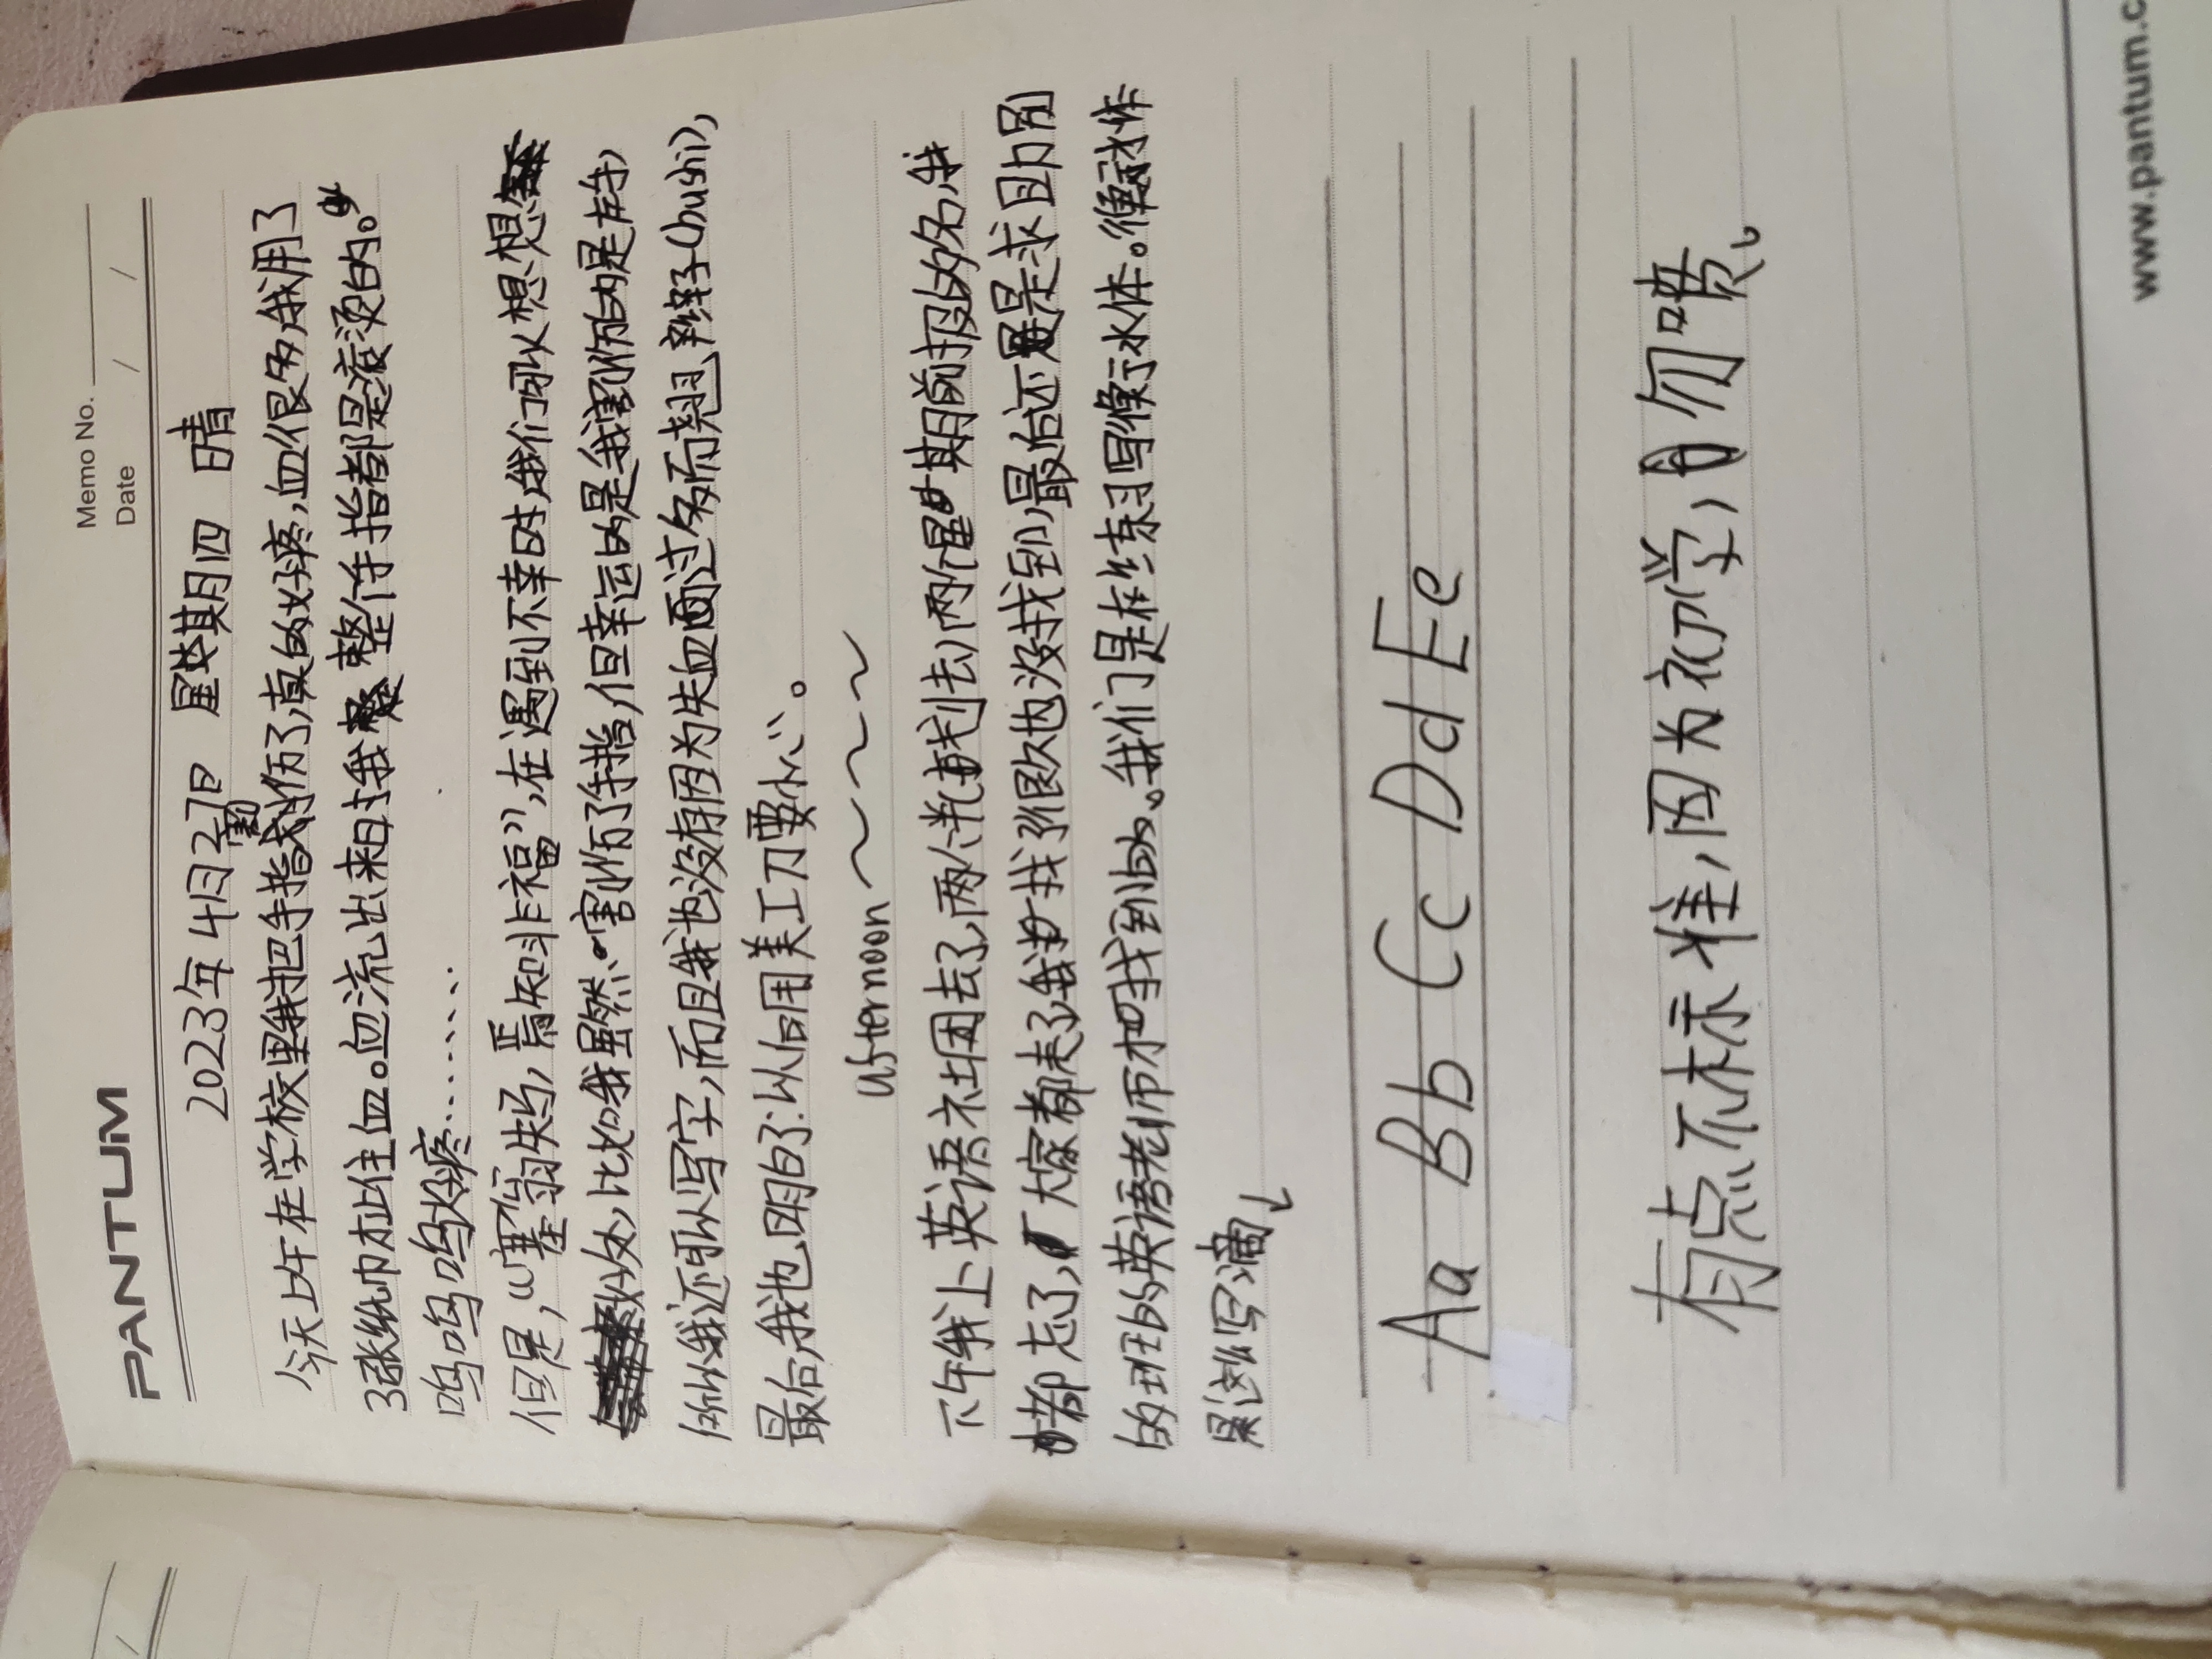 PANTUM
Memo No.
Date / /
2023年4月27日 星期四 晴
今天上午在学校里我把手指割伤了,真的好疼,血很多,我用了
3张纸巾才止住血。血流出来时我整个手指都是滚烫的。
呜呜呜好疼........
但是,“塞翁失马,焉知非福”,在遇到不幸时,我们可以想想
好处,比如我虽然割伤了手指,但幸运的是我割伤的是左手,
所以我还可以写字,而且我也没有因为失血过多而翘辫子(bushi),
最后,我也明白了:以后用美工刀要小心。
afternoon ~ ~ ~ ~
下午我上英语社团去了,两个半就去,两个星期前报的名,我
都忘了,大家都走了,我找了很久也没找到,最后还是求助别
的班的英语老师才把我找到的。我们是在练习写衡水体。衡水体
是这么写滴↓
Aa Bb Cc Dd Ee
有点不标准,因为初学,勿喷、
www.pantum.c